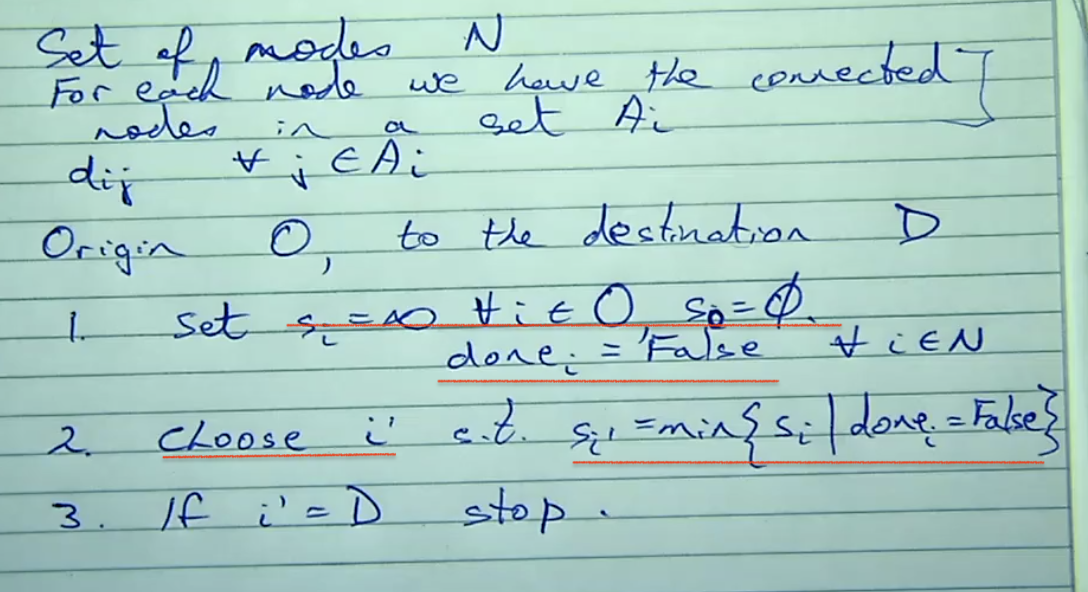 Set of nodes N
For each node we have the connected
nodes in a set Ai
dij ∀ j ∈ Ai
Origin O, to the destination D
1. Set si = ∞ ∀ i ∈ O, so = 0.
donei = 'False ∀ i ∈ N
2. Choose i' s.t. si' = min{si | donei = False}
3. If i' = D stop.